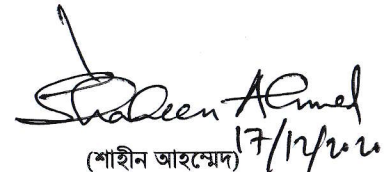 Shaheen Ahmed
(শাহীন আহম্মেদ) 17/12/2020